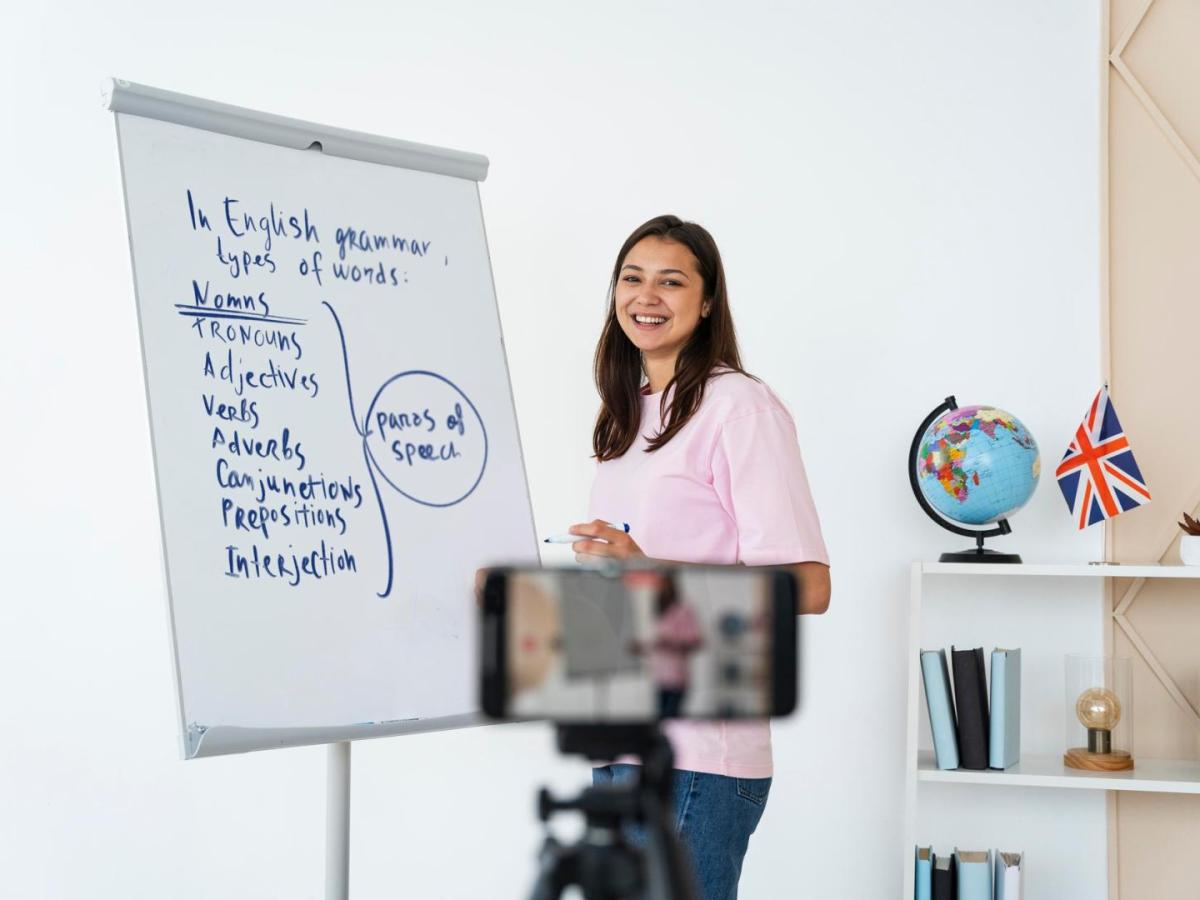 In English grammar,
types of words:
Nomns
Pronouns
Adjectives
Verbs
Adverbs
Conjunctions
Prepositions
Interjection
paras of
speech